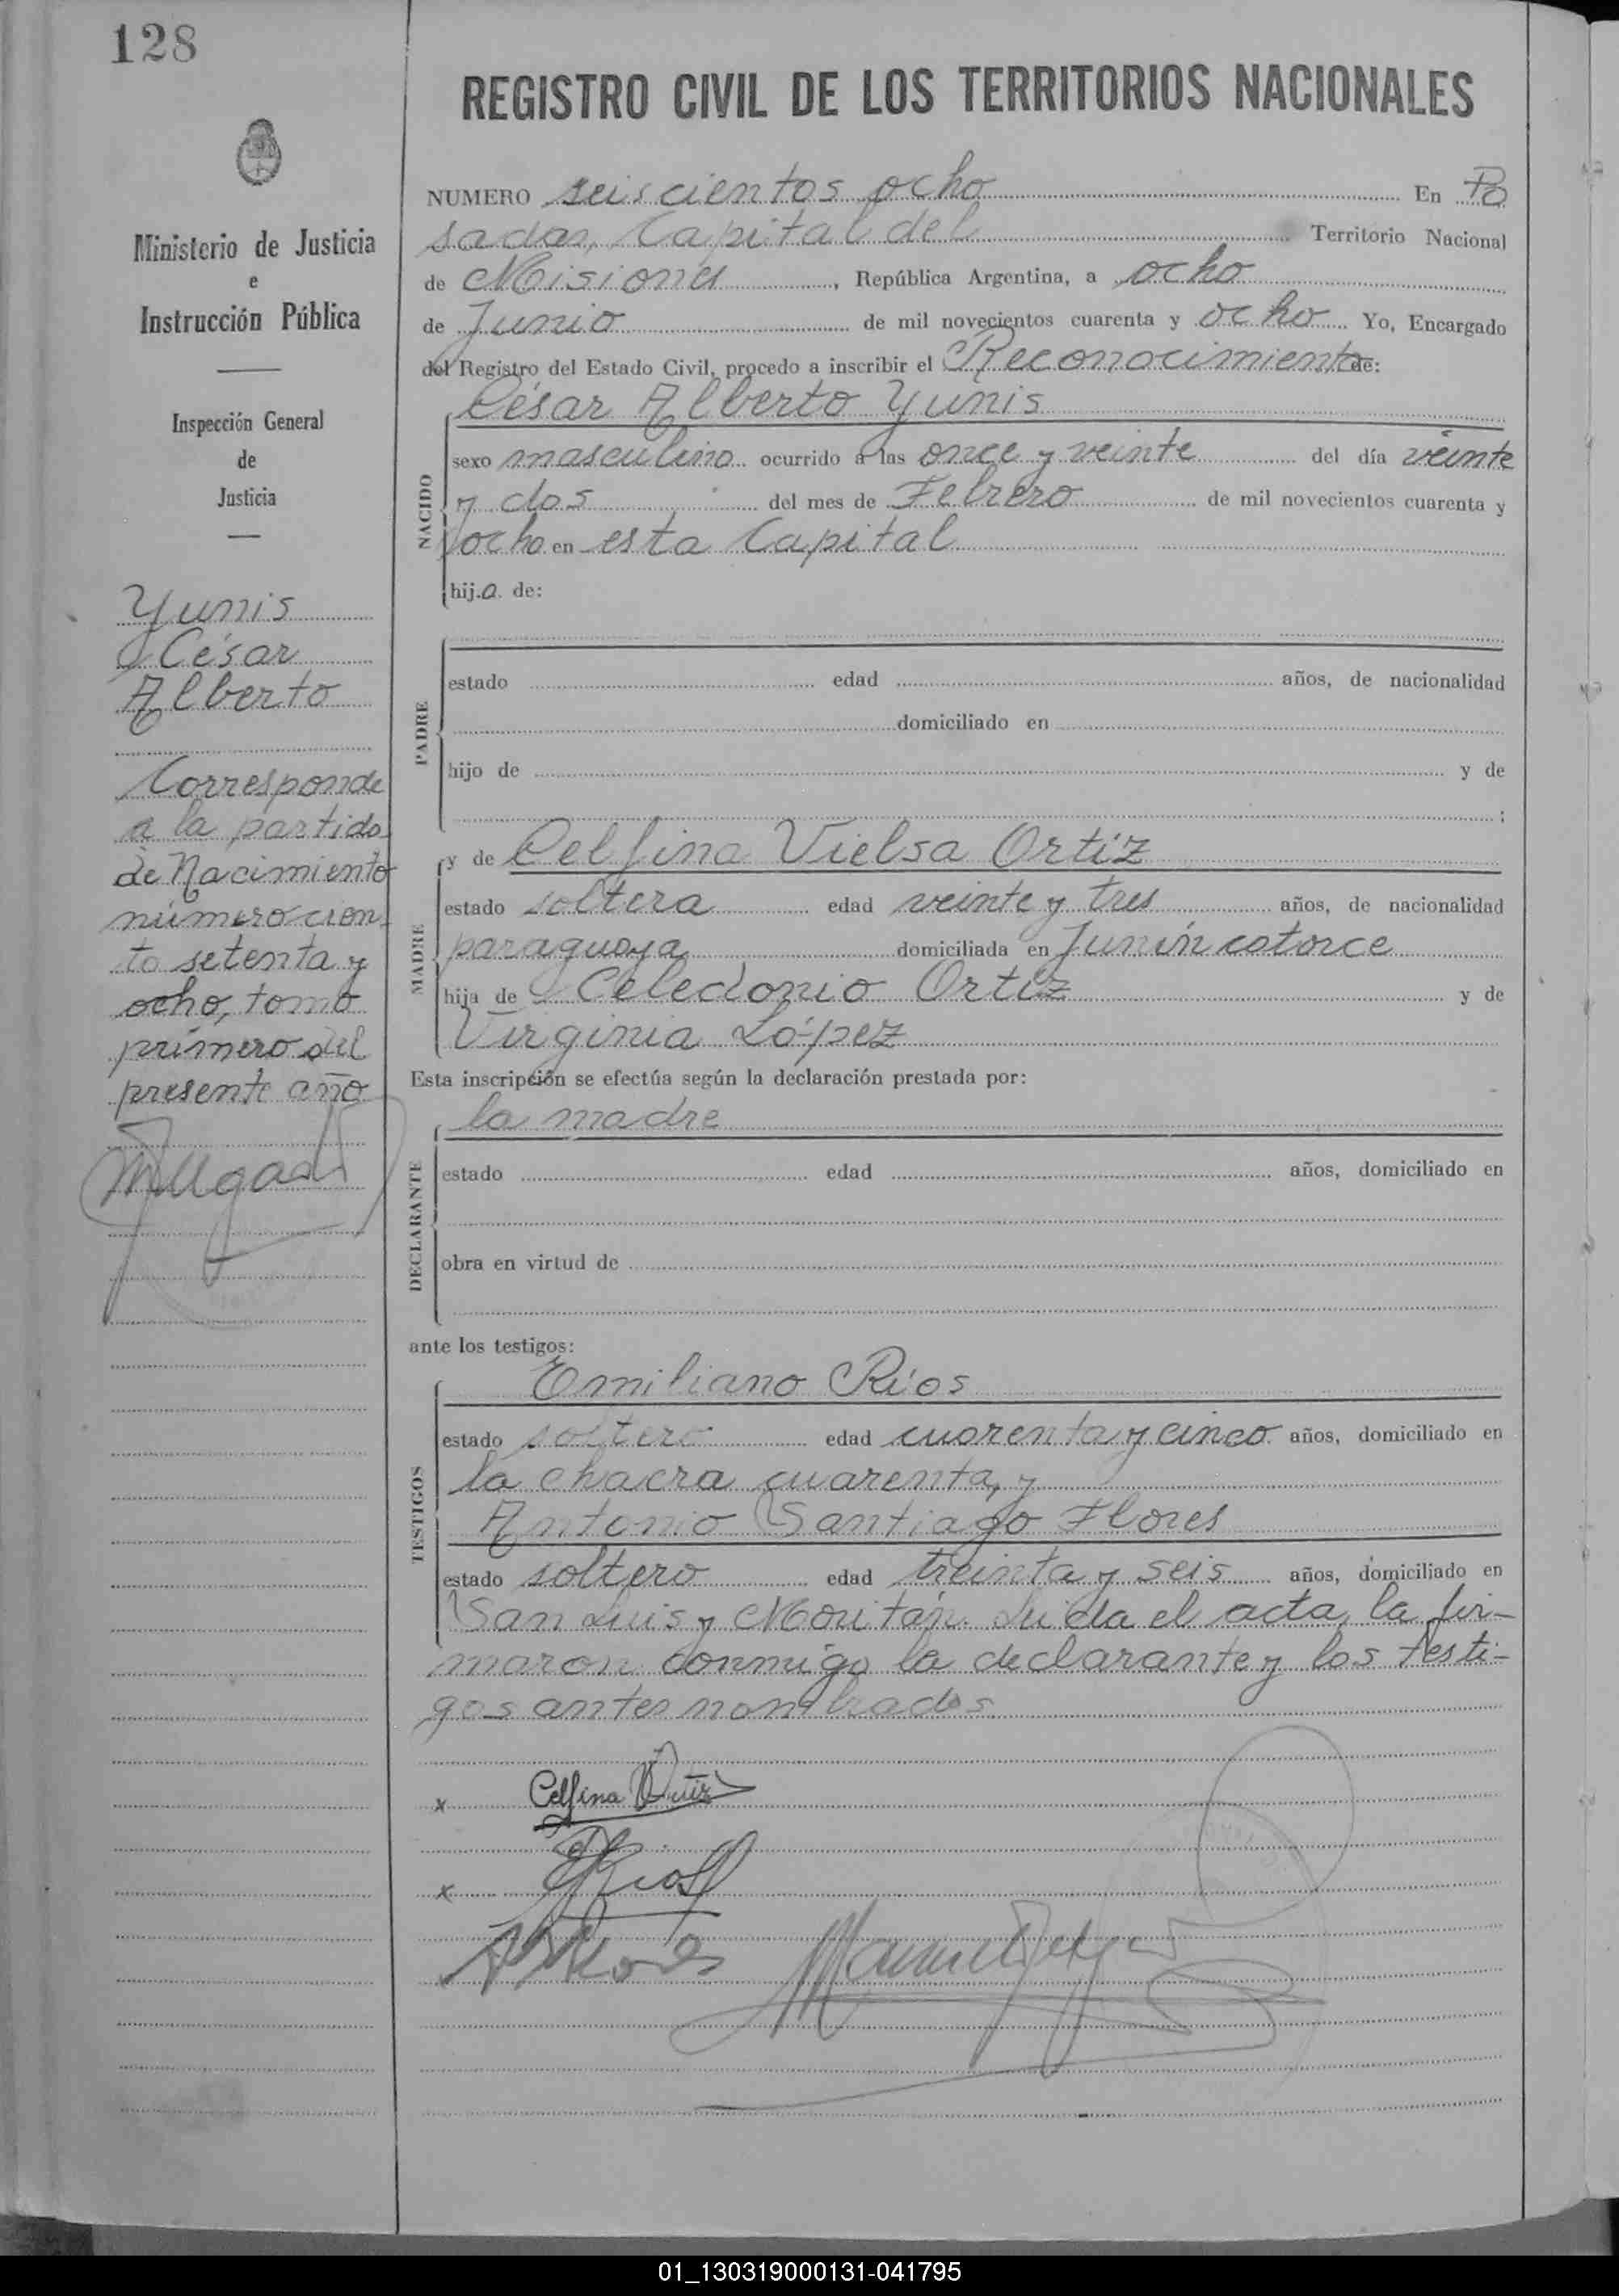 128
REGISTRO CIVIL DE LOS TERRITORIOS NACIONALES
Ministerio de Justicia
e
Instrucción Pública
Inspección General
de
Justicia
Yunis
César
Alberto
Corresponde
a la partida
de Nacimiento
número cien
to setenta y
ocho, tomo
primero del
presente año
NUMERO seiscientos ocho En Po
sadas, Capital del Territorio Nacional
de Misiones, República Argentina, a ocho
de Junio de mil novecientos cuarenta y ocho Yo, Encargado
del Registro del Estado Civil, procedo a inscribir el Reconocimiento de:
NACIDO
César Alberto Yunis
sexo masculino ocurrido a las once y veinte del día veinte
y dos del mes de Febrero de mil novecientos cuarenta y
ocho en esta Capital
hij.o. de:
PADRE
estado edad años, de nacionalidad
domiciliado en
hijo de y de
;
MADRE
y de Celfina Vielsa Ortíz
estado soltera edad veinte y tres años, de nacionalidad
paraguaya domiciliada en Junín catorce
hija de Celedonio Ortíz y de
Virginia López
Esta inscripción se efectúa según la declaración prestada por:
DECLARANTE
la madre
estado edad años, domiciliado en
obra en virtud de
ante los testigos:
TESTIGOS
Emiliano Ríos
estado soltero edad cuarenta y cinco años, domiciliado en
la chacra cuarenta, y
Antonio Santiago Flores
estado soltero edad treinta y seis años, domiciliado en
San Luis y Moritán. Leída el acta, la fir-
maron conmigo la declarante y los testi-
gos antes nombrados
x Celfina Ortiz
x ERios
01_130319000131-041795